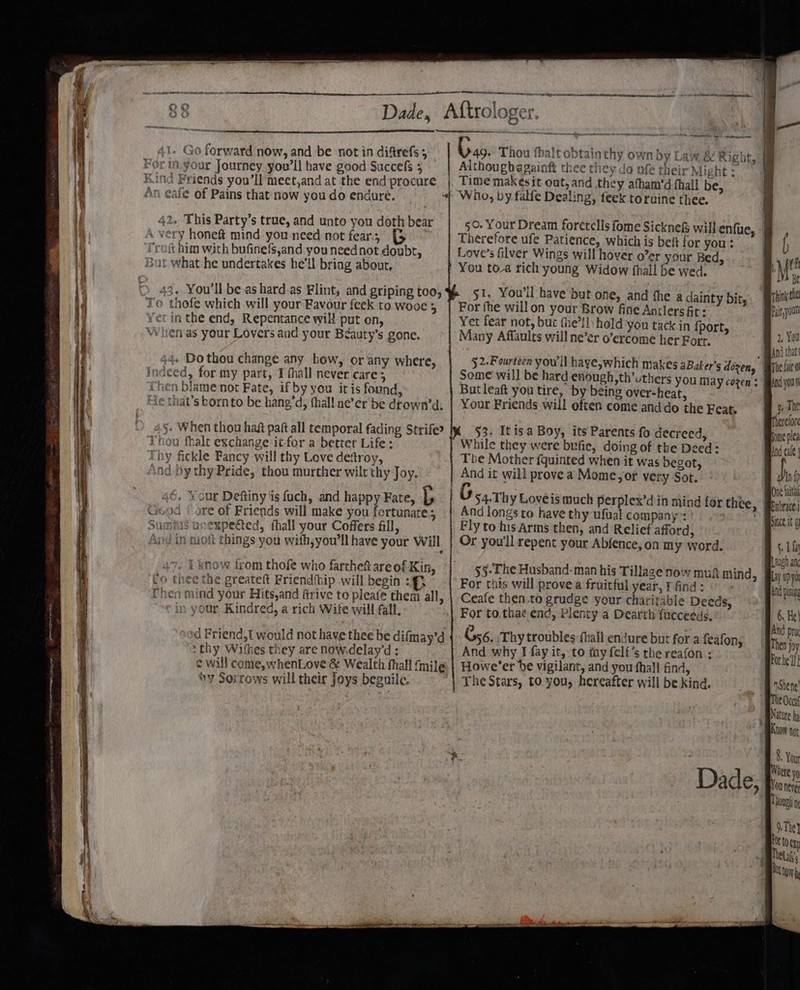 88
Dade, Aſtrologer.
41. Go forward now, and be not in diſtreſs;
For in your Journey you'll have good Succeſs;
Kind Friends you'll meet, and at the end procure
An eaſe of Pains that now you do endure.
42. This Party's true, and unto you doth bear
A very honeſt mind you need not fear;
Truſt him with buſineſs, and you need not doubt,
But what he undertakes he'll bring about.
43. You'll be as hard as Flint, and griping too,
To thoſe which will your Favour ſeek to wooe;
Yet in the end, Repentance will put on,
When as your Lovers and your Beauty's gone.
44. Do thou change any how, or any where,
Indeed, for my part, I ſhall never care;
Then blame not Fate, if by you it is found,
He that's born to be hang'd, ſhall ne'er be drown'd.
45. When thou haſt paſt all temporal fading Strife?
Thou ſhalt exchange it for a better Life:
Thy fickle Fancy will thy Love deſtroy,
And by thy Pride, thou murther wilt thy Joy.
46. Your Deſtiny is ſuch, and happy Fate,
Good ore of Friends will make you fortunate;
Summs unexpected, ſhall your Coffers fill,
And in moſt things you wiſh, you'll have your Will
47. I know from thoſe who fartheſt are of Kin,
To thee the greateſt Friendſhip will begin:
Then mind your Hits, and ſtrive to pleaſe them all,
in your Kindred, a rich Wife will fall.
Friend, I would not have thee be diſmay'd
thy Wiſhes they are now delay'd:
e will come, when Love & Wealth ſhall ſmile,
by Sorrows will their Joys beguile.
49. Thou ſhalt obtain thy own by Law & Right,
Although againſt thee they do uſe their Might:
Time makes it out, and they aſham'd ſhall be,
Who, by falſe Dealing, ſeek to ruine thee.
50. Your Dream foretells ſome Sickneſs will enſue,
Therefore uſe Patience, which is beſt for you:
Love's ſilver Wings will hover o'er your Bed,
You to a rich young Widow ſhall be wed.
51. You'll have but one, and ſhe a dainty bit,
For ſhe will on your Brow fine Antlers fit:
Yet fear not, but ſhe'll hold you tack in ſport,
Many Aſſaults will ne'er o'ercome her Fort.
52. Fourteen you'll have, which makes a Baker's dozen,
Some will be hard enough, th'others you may cozen:
But leaſt you tire, by being over-heat,
Your Friends will often come and do the Feat.
53. It is a Boy, its Parents ſo decreed,
While they were buſie, doing of the Deed:
The Mother ſquinted when it was begot,
And it will prove a Mome, or very Sot.
54. Thy Love is much perplex'd in mind for thee,
And longs to have thy uſual company:
Fly to his Arms then, and Relief afford,
Or you'll repent your Abſence, on my word.
55. The Husband-man his Tillage now muſt mind,
For this will prove a fruitful year, I find:
Ceaſe then to grudge your charitable Deeds,
For to that end, Plenty a Dearth ſucceeds.
56. Thy troubles ſhall endure but for a ſeaſon,
And why I ſay it, to thy ſelf's the reaſon:
Howe'er be vigilant, and you ſhall find,
The Stars, to you, hereafter will be kind.
Dade,